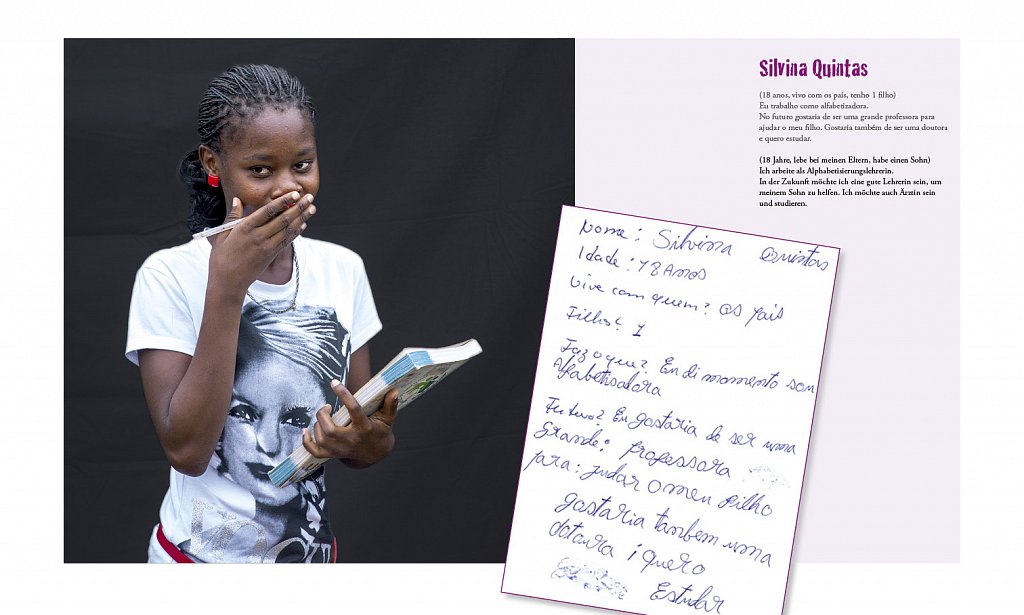 Silvina Quintas
(18 anos, vivo com os pais, tenho 1 filho)
Eu trabalho como alfabetizadora.
No futuro gostaria de ser uma grande professora para
ajudar o meu filho. Gostaria também de ser uma doutora
e quero estudar.
(18 Jahre, lebe bei meinen Eltern, habe einen Sohn)
Ich arbeite als Alphabetisierungslehrerin.
In der Zukunft möchte ich eine gute Lehrerin sein, um
meinem Sohn zu helfen. Ich möchte auch Ärztin sein
und studieren.
Nome: Silvina Quintas
Idade: 18 Anos
Vive com quem? os pais
Filhos? 1
Faz o que? En di momento sou
Alfabetisadora
Futuro? Eu gostaria de ser uma
Grande: professora
para: judar o meu filho
gostaria tambem uma
dotoura i quero
Estudar